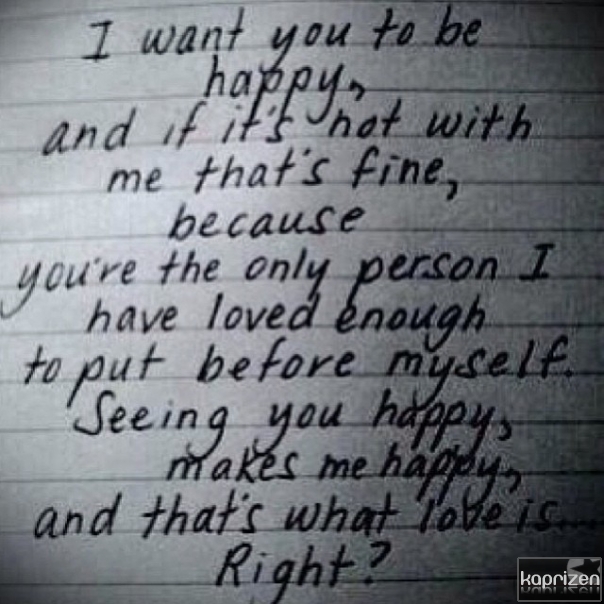 I want you to be
happy,
and if it's not with
me that's fine,
because
you're the only person I
have loved enough
to put before myself.
Seeing you happy,
makes me happy,
and that's what love is...
Right?
kaprizen